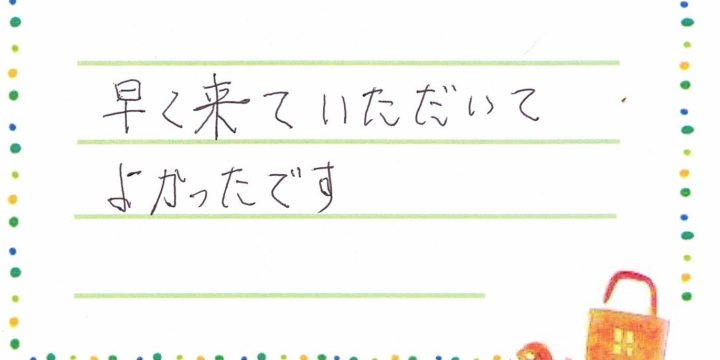 早く来ていただいて
よかったです